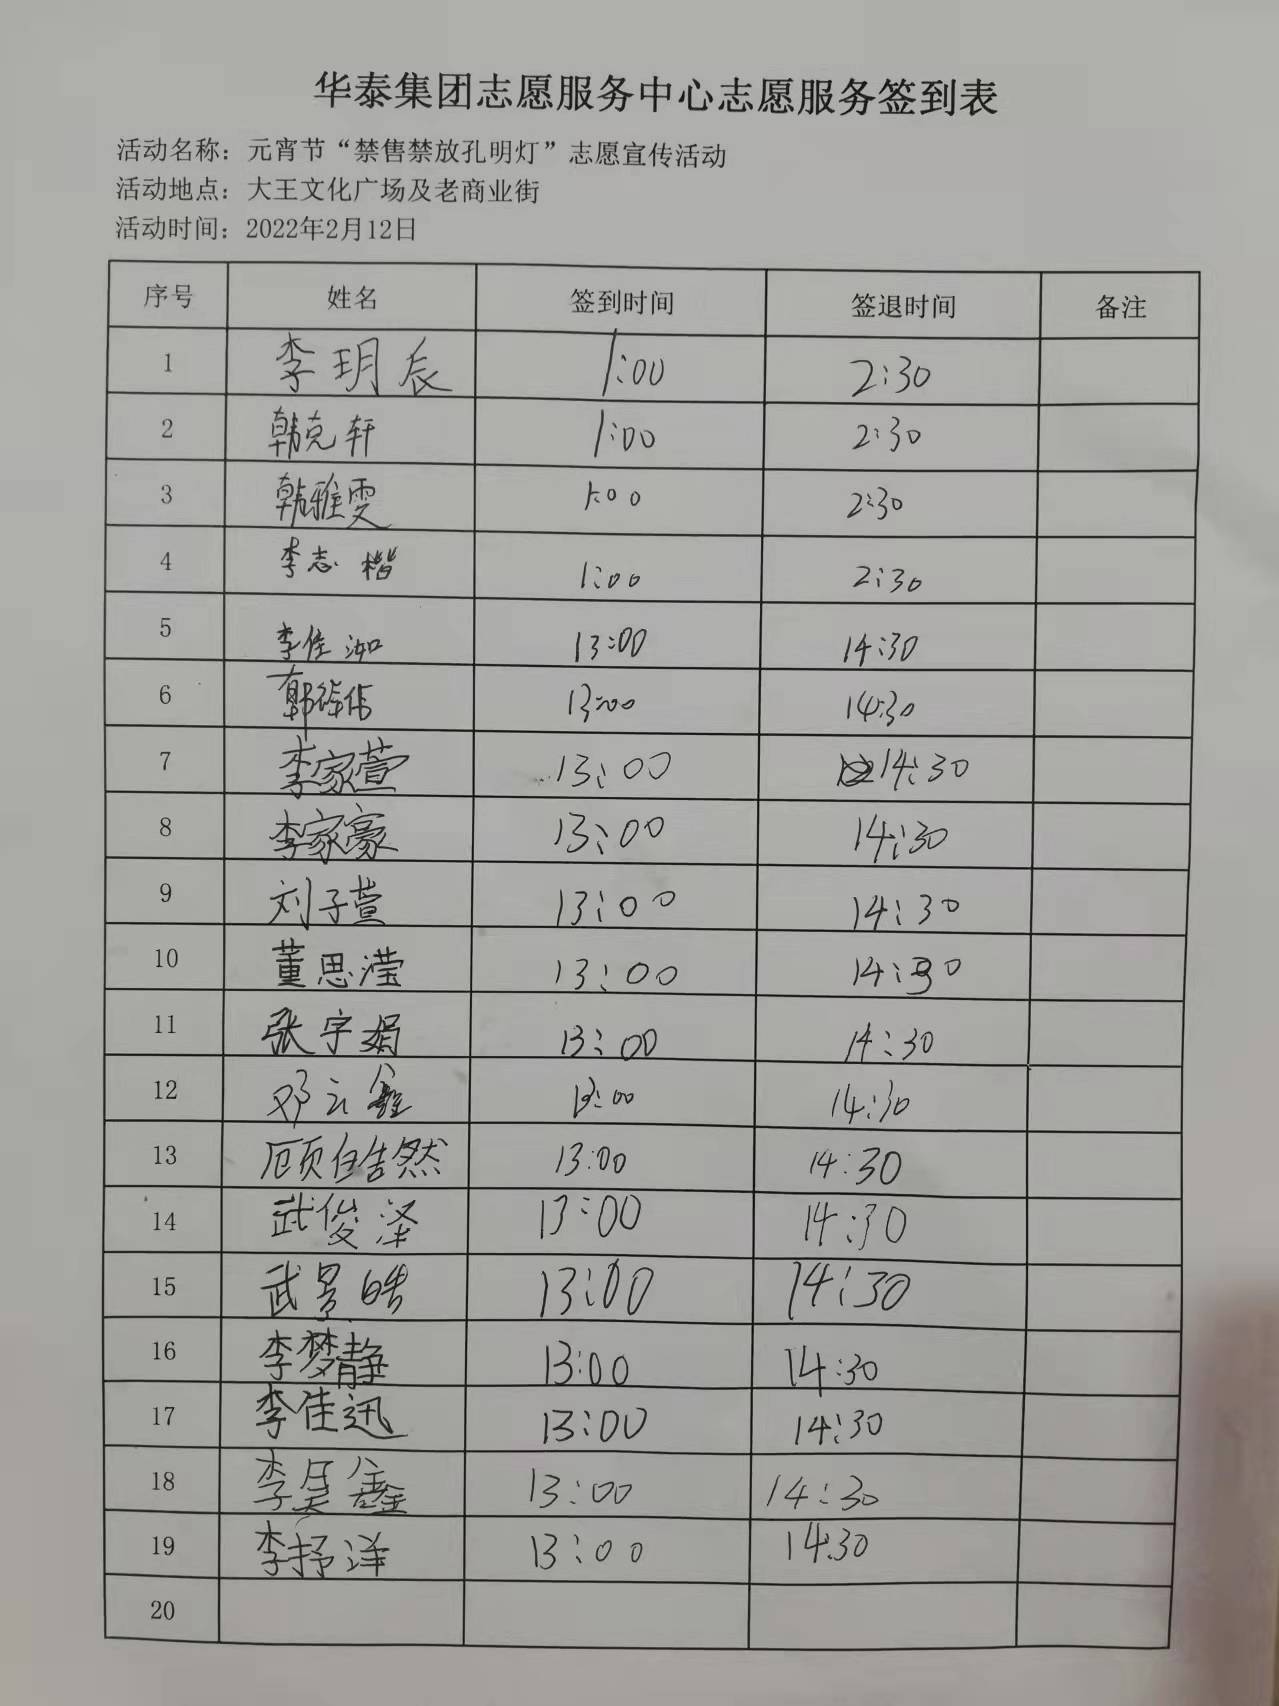 华泰集团志愿服务中心志愿服务签到表
活动名称：元宵节“禁售禁放孔明灯”志愿宣传活动
活动地点：大王文化广场及老商业街
活动时间：2022年2月12日
序号 姓名 签到时间 签退时间 备注
1 李玥辰 1:00 2:30
2 韩克轩 1:00 2:30
3 韩雅雯 1:00 2:30
4 李志楷 1:00 2:30
5 李佳洳 13:00 14:30
6 13:00 14:30
7 李家萱 13:00 14:30
8 李家豪 13:00 14:30
9 刘子萱 13:00 14:30
10 董思滢 13:00 14:30
11 张宇娟 13:00 14:30
12 邓云鑫 13:00 14:30
13 顾皓然 13:00 14:30
14 武俊泽 13:00 14:30
15 武景皓 13:00 14:30
16 李梦静 13:00 14:30
17 李佳迅 13:00 14:30
18 李昊鑫 13:00 14:30
19 李抒洋 13:00 14:30
20